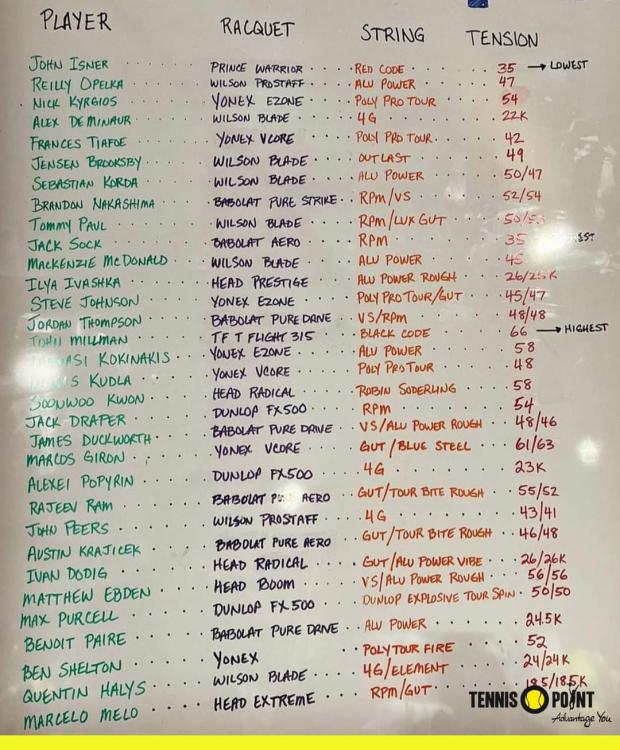 PLAYER RACQUET STRING TENSION
JOHN ISNER PRINCE WARRIOR RED CODE 35 → LOWEST
REILLY OPELKA WILSON PROSTAFF ALU POWER 47
NICK KYRGIOS YONEX EZONE POLY PRO TOUR 54
ALEX DEMINAUR WILSON BLADE 4G 22K
FRANCES TIAFOE YONEX VCORE POLY PRO TOUR 42
JENSEN BROOKSBY WILSON BLADE OUTLAST 49
SEBASTIAN KORDA WILSON BLADE ALU POWER 50/47
BRANDON NAKASHIMA BABOLAT PURE STRIKE RPM/VS 52/54
TOMMY PAUL WILSON BLADE RPM/LUX GUT
JACK SOCK BABOLAT AERO RPM 35
MACKENZIE MCDONALD WILSON BLADE ALU POWER 45
ILYA IVASHKA HEAD PRESTIGE ALU POWER ROUGH 26/25K
STEVE JOHNSON YONEX EZONE POLY PRO TOUR/GUT 45/47
JORDAN THOMPSON BABOLAT PURE DRIVE VS/RPM 48/48
JOHN MILLMAN TF T FLIGHT 315 BLACK CODE 66 → HIGHEST
KOKINAKIS YONEX EZONE ALU POWER 58
KUDLA YONEX VCORE POLY PROTOUR 48
SOONWOO KWON HEAD RADICAL ROBIN SODERLING 58
JACK DRAPER DUNLOP FX500 RPM 54
JAMES DUCKWORTH BABOLAT PURE DRIVE VS/ALU POWER ROUGH 48/46
MARCOS GIRON YONEX VCORE GUT/BLUE STEEL 61/63
ALEXEI POPYRIN DUNLOP FX500 4G 23K
RAJEEV RAM BABOLAT PURE AERO GUT/TOUR BITE ROUGH 55/52
JOHN PEERS WILSON PROSTAFF 4G 43/41
AUSTIN KRAJICEK BABOLAT PURE AERO GUT/TOUR BITE ROUGH 46/48
IVAN DODIG HEAD RADICAL GUT/ALU POWER VIBE 26/26K
MATTHEW EBDEN HEAD BOOM VS/ALU POWER ROUGH 56/56
MAX PURCELL DUNLOP FX 500 DUNLOP EXPLOSIVE TOUR SPIN 50/50
BENOIT PAIRE BABOLAT PURE DRIVE ALU POWER 24.5K
BEN SHELTON YONEX POLYTOUR FIRE 52
QUENTIN HALYS WILSON BLADE 4G/ELEMENT 24/24K
MARCELO MELO HEAD EXTREME RPM/GUT
TENNIS POINT
Advantage You